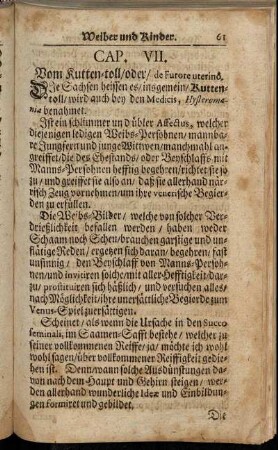 Weiber und Kinder. 61
CAP. VII.
Vom Kutten-toll/oder/ de Furore uterinô.
DJe Sachsen heissen es/ insgemein/ Kutten-
toll/ wird auch bey den Medicis, Hysteroma-
nia benahmet.
Ist ein schlimmer und übler Affectus, welcher
diejenigen ledigen Weibs-Persohnen/ mannba-
re Jungfern und junge Wittwen/ manchmahl an-
greiffet/ die des Ehestands/ oder Beyschlaffs mit
Manns-Persohnen hefftig begehren/ richtet sie jo
zu/ und greiffet sie also an/ daß sie allerhand när-
risch Zeug vornehmen/ um ihre venerische Begier-
den zu erfüllen.
Die Weibs-Bilder/ welche von solcher Ver-
drießlichkeit befallen werden/ haben weder
Schaam noch Scheu/ brauchen garstige und un-
flätige Reden/ ergetzen sich daran/ begehren/ fast
unsinnig/ den Beyschlaff von Manns-Persoh-
nen/ und invitiren solche/ mit aller Hefftigkeit dar-
zu/ prostituiren sich häßlich/ und versuchen alles
nach Möglichkeit/ ihre unersättliche Begierde zum
Venus-Spiel zu vergnügen.
Scheinet/ als wenn die Ursache in den Succo
seminali, im Saamen-Safft bestehe/ welcher zu
seiner vollkommenen Reiffe/ ja/ möchte ich wohl
wohl sagen/ über vollkommener Reiffigkeit gedie-
hen ist. Denn wann solche Ausdünstungen da-
von nach dem Haupt und Gehirn steigen/ wer-
den allerhand wunderliche Ideæ und Einbildun-
gen formiret und gebildet.
Die